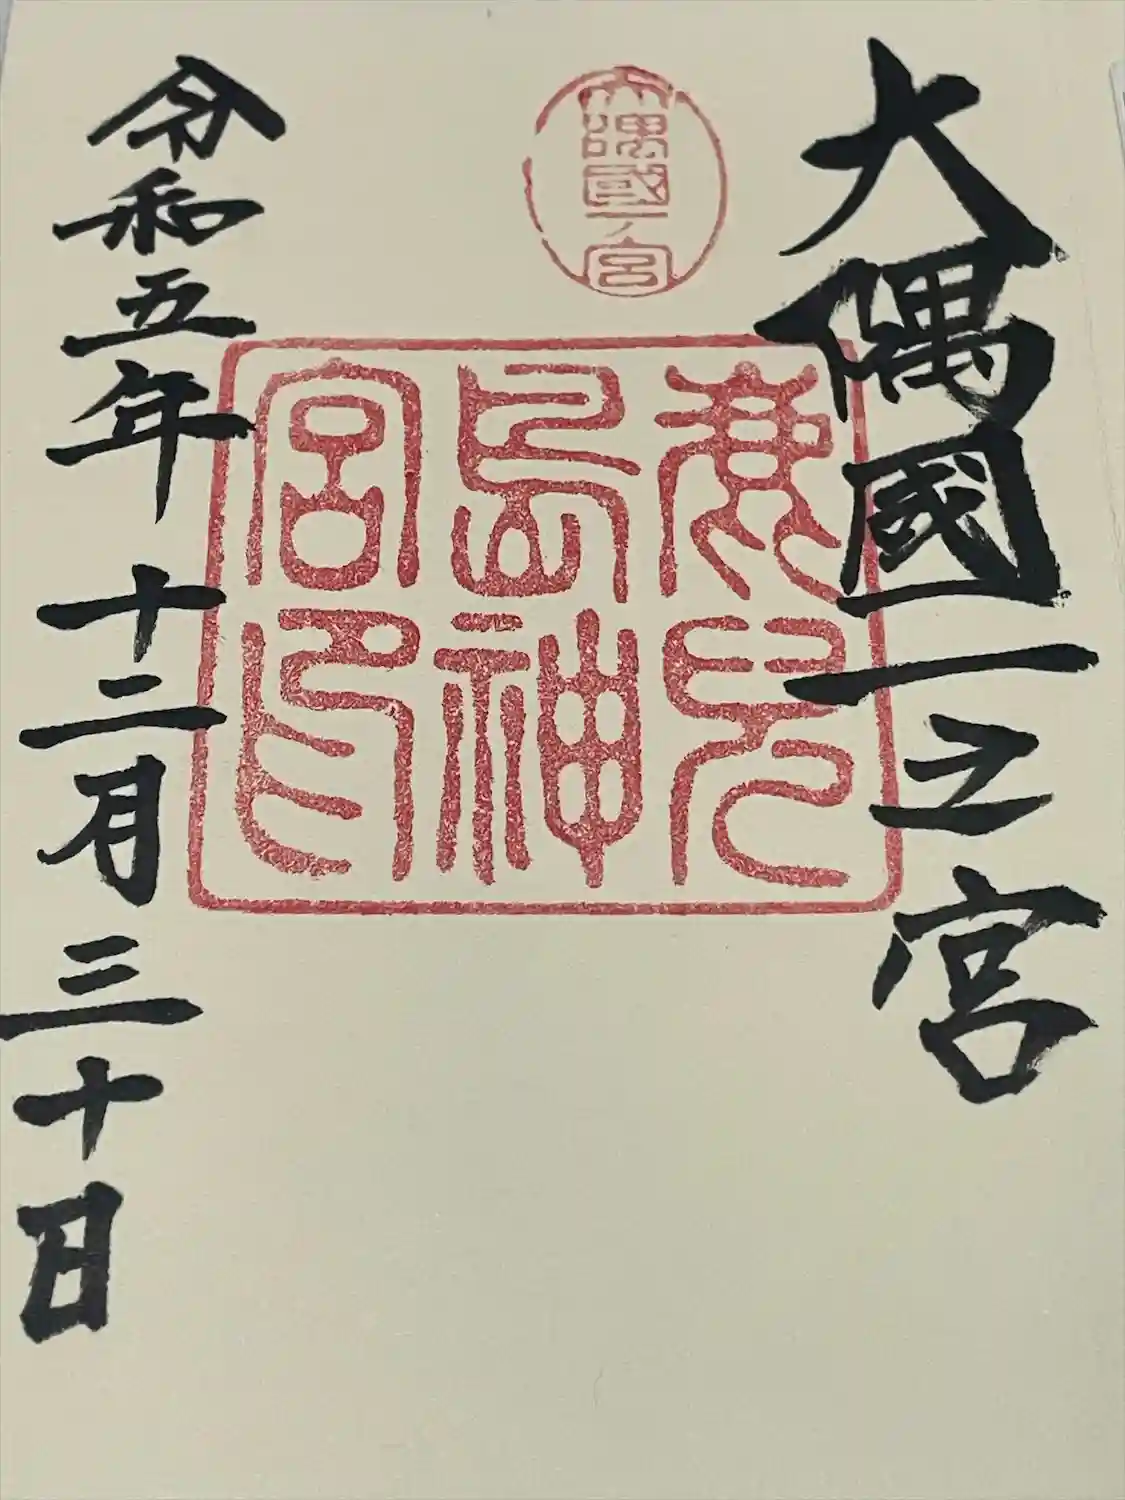 大隅國一之宮
大隅國一ノ宮
鹿兒島神宮印
令和五年十二月三十日